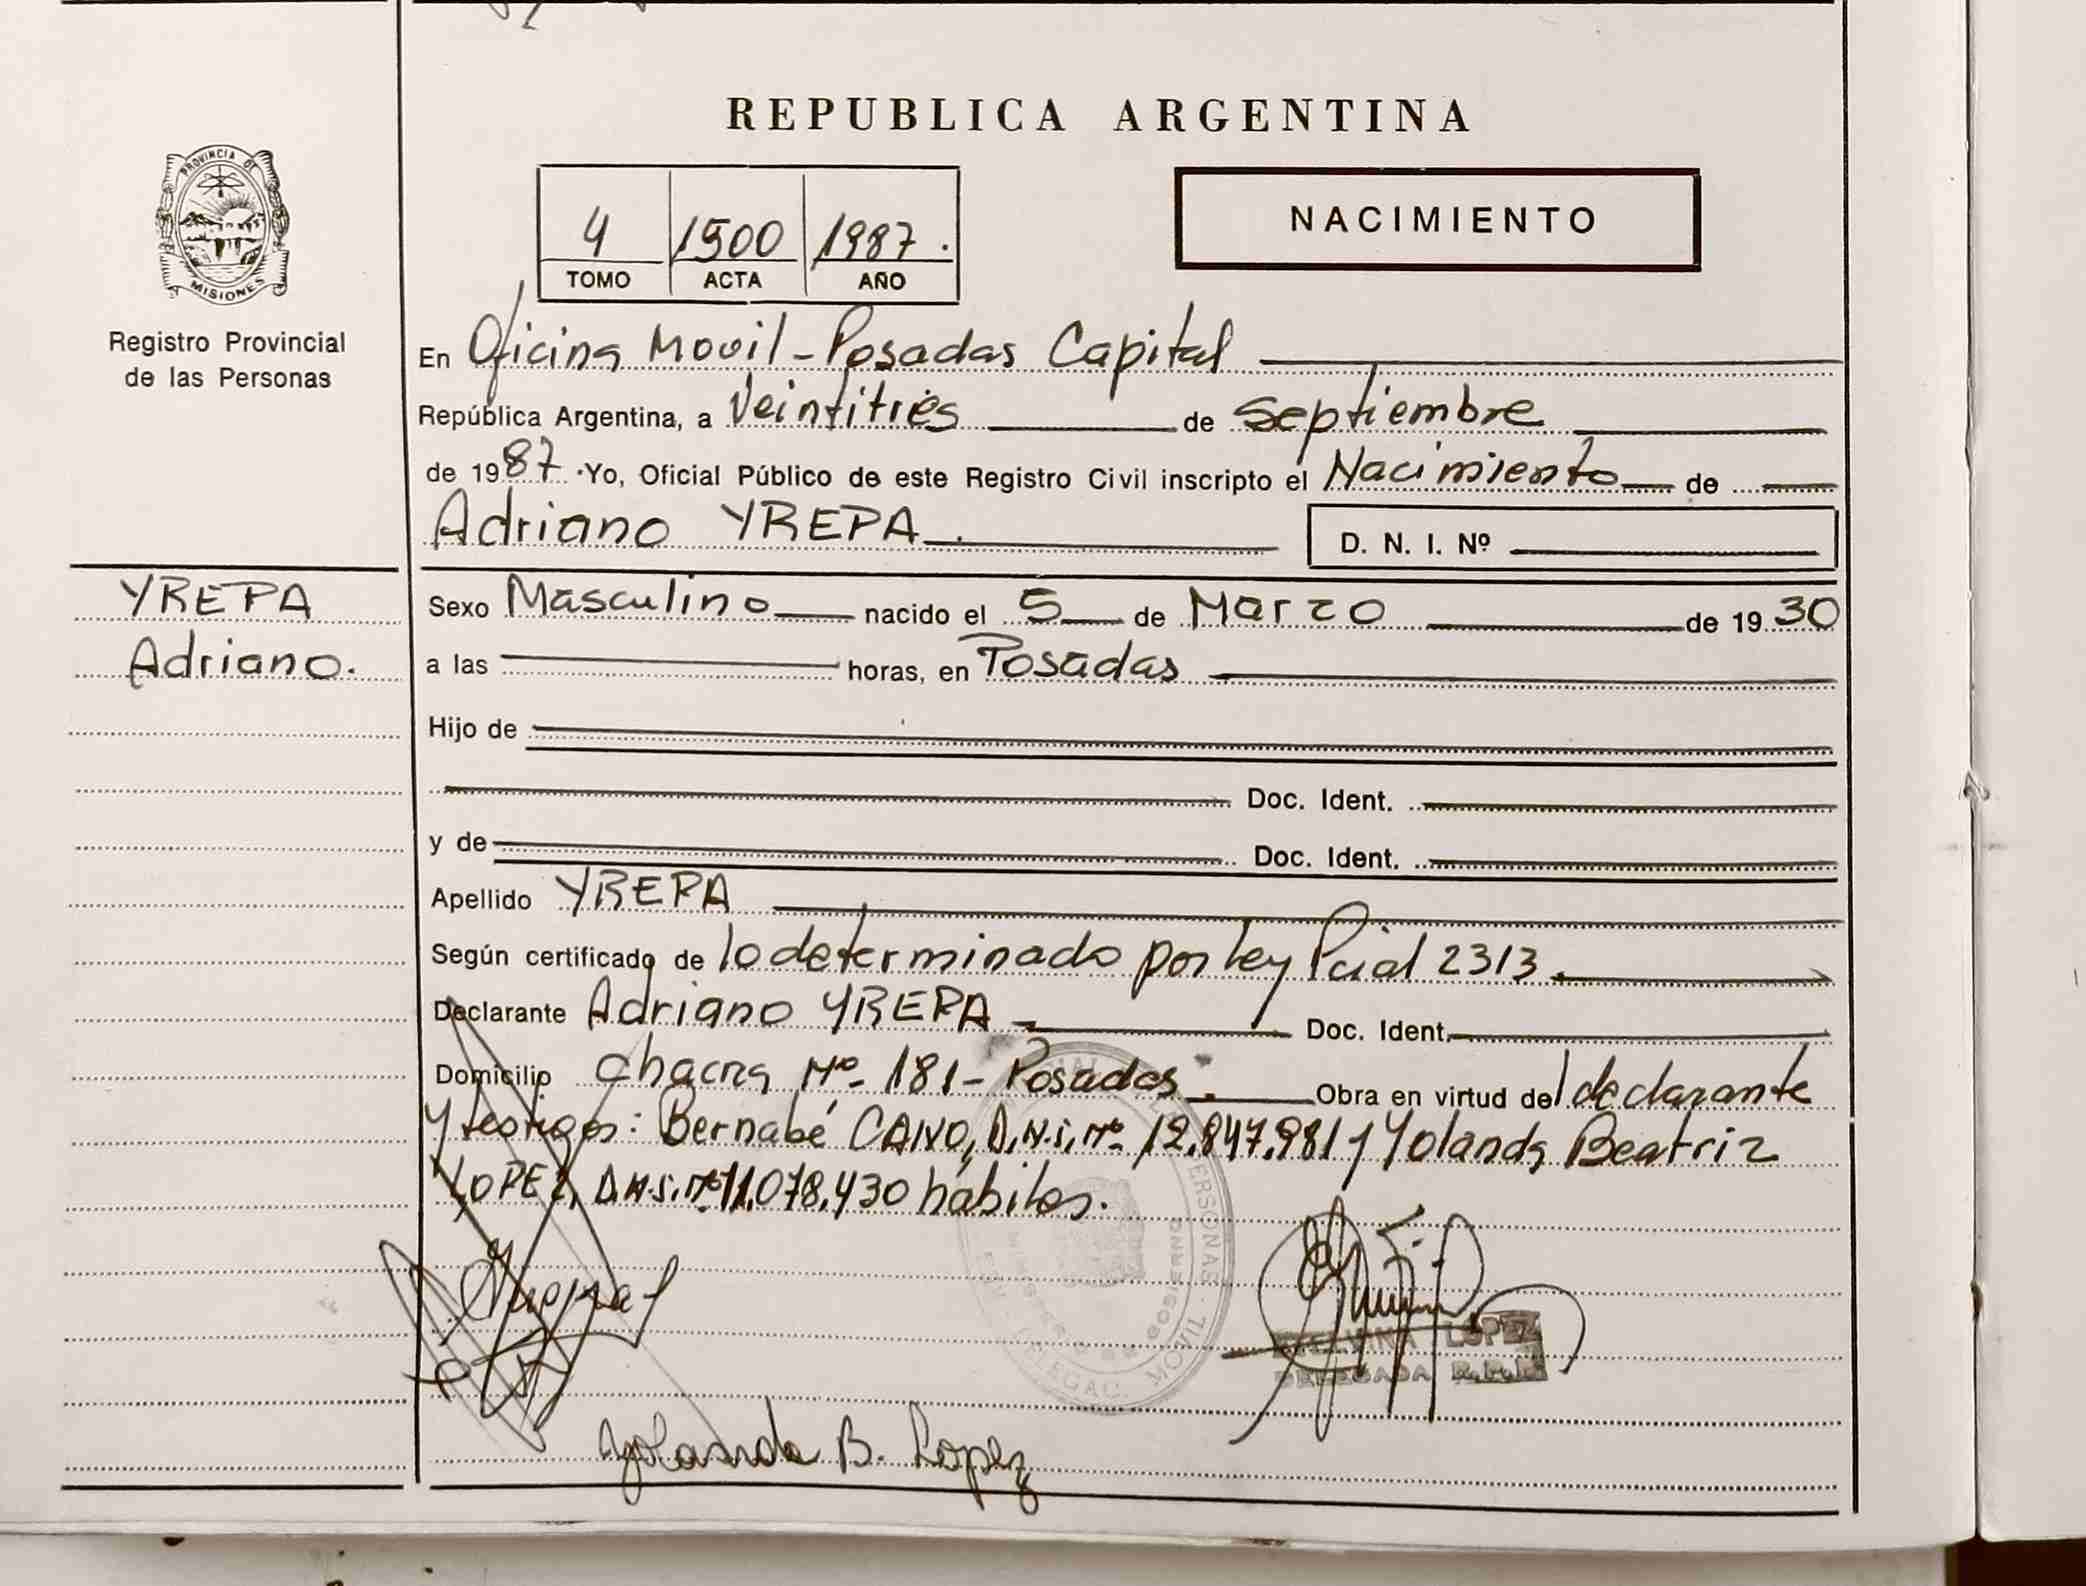 REPUBLICA ARGENTINA
PROVINCIA DE
MISIONES
Registro Provincial
de las Personas
4 1500 1987.
TOMO ACTA AÑO
NACIMIENTO
En Oficina Movil - Posadas Capital
República Argentina, a Veintitrés de Septiembre
de 1987. Yo, Oficial Público de este Registro Civil inscripto el Nacimiento de
Adriano YREPA. D. N. I. Nº
YREPA
Adriano.
Sexo Masculino nacido el 5 de Marzo de 1930
a las horas, en Posadas
Hijo de
Doc. Ident.
y de Doc. Ident.
Apellido YREPA
Según certificado de lo determinado por Ley Pcial 2313.
Declarante Adriano YREPA Doc. Ident.
Domicilio Chacra Nº 181 - Posadas. Obra en virtud del declarante
y testigos: Bernabé D.N.I. Nº 12.847.981 y Yolanda Beatriz
LOPEZ, D.N.I. Nº 11.078.430 hábiles.
PERSONAS
GOBIERNO
MOVIL
LOPEZ
DELEGADA R.P.P.
Yolanda B. Lopez